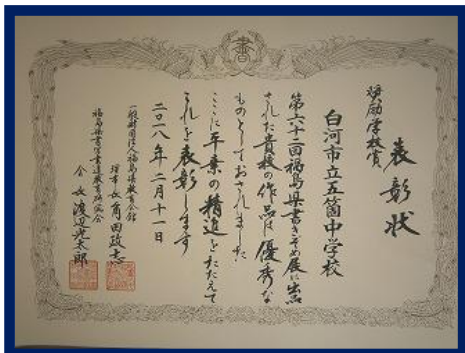 書
表彰状
奨励学校賞
白河市立五箇中学校
第六十二回福島県書きぞめ展に出品
された貴校の作品は優秀な
ものとしておされました
ここに平素の精進をたたえて
これを表彰します
二〇一八年二月十一日
一般財団法人福島県教育会館
理事長 角田政志
福島県書写書道教育研究会
会長 渡辺光太郎